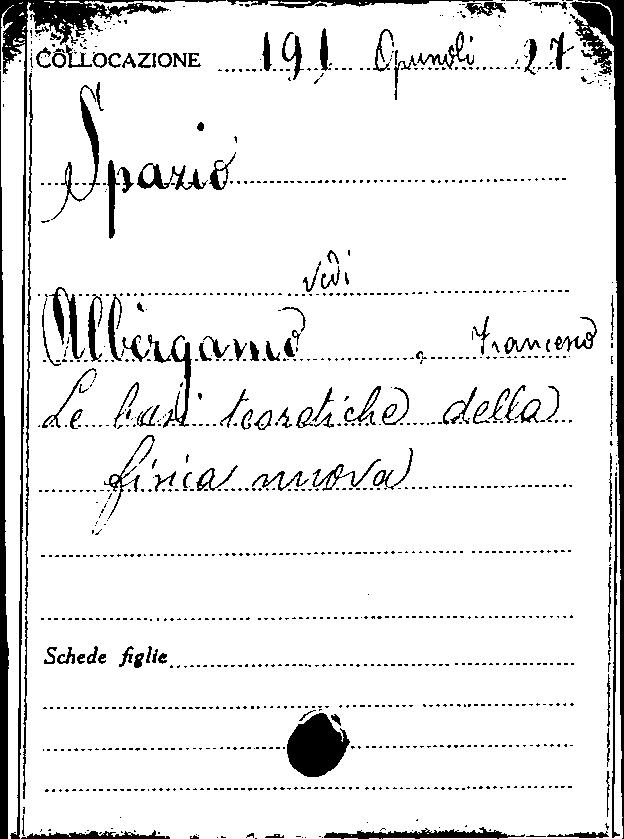 COLLOCAZIONE 191 Opuscoli 27
Spazio
vedi
Albèrgamo, Francesco
Le basi teoretiche della
fisica nuova
Schede figlie